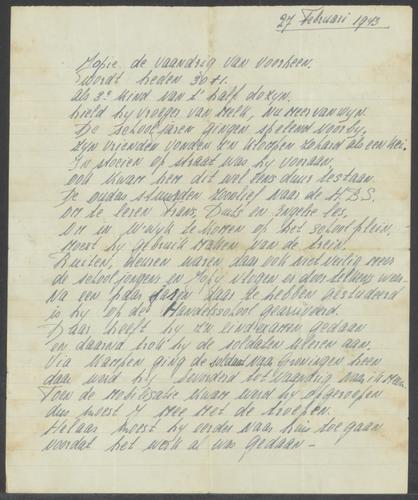 27 Februari 1943
Hopie de vaandrig van voorheen.
wordt heden 30+1.
Als 3e kind van 't half dozijn.
hield hij vroeger van melk, nu meer van wijn.
De schooljaren gingen spelend voorbij,
zijn vrienden vonden z'n kloppen zo hard als een hei.
In stoeien op straat was hij vooraan,
ook kwam hem dit wel eens duur te staan.
De ouders stuurden zoonlief naar de H.B.S.
om te leren Frans, Duits en Engelse les,
Om in Wijk te komen op het schoolplein,
moest hij gebruik maken van de trein.
Ruiten, deuren waren daar ook niet veilig voor
de schooljongens en Hopy vlogen er door telkens weer.
Na een paar jaren daar te hebben gestudeerd
is hij op de Handelsschool gearriveerd.
Daar heeft hij z'n eindexamen gedaan
en daarna trok hij de soldatenkleren aan,
Via Kampen ging de soldaat naar Groningen heen
daar werd hij bevorderd tot vaandrig
Toen de mobilisatie kwam werd hij opgeroepen
dus moest J mee met de troepen.
Helaas moest hij eerder naar huis toe gaan
voordat het werk al was gedaan –